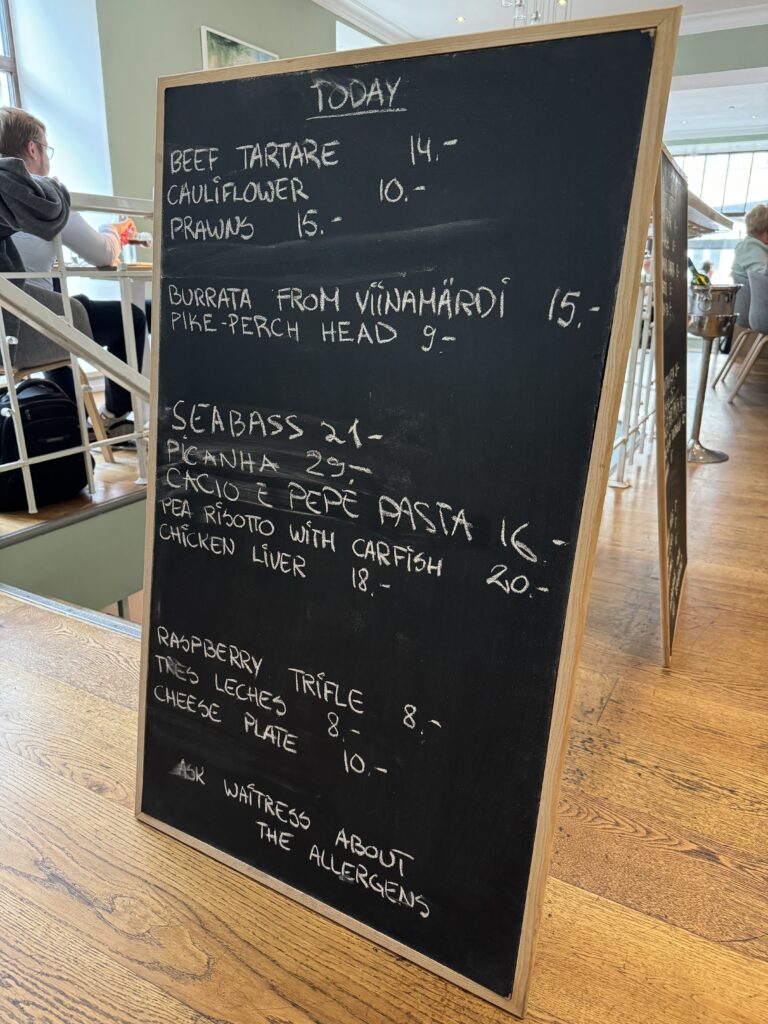 TODAY
BEEF TARTARE 14.-
CAULIFLOWER 10.-
PRAWNS 15.-
BURRATA FROM VIINAMÄRDI 15.-
PIKE-PERCH HEAD 9-
SEABASS 21-
PICANHA 29-
CACIO E PEPE PASTA 16-
PEA RISOTTO WITH CARFISH 20.-
CHICKEN LIVER 18.-
RASPBERRY TRIFLE 8.-
TRES LECHES 8.-
CHEESE PLATE 10.-
ASK WAITRESS ABOUT
THE ALLERGENS